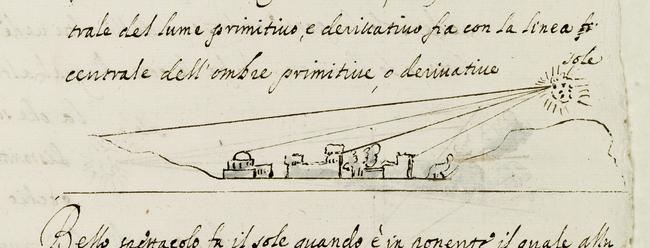 trale del lume primitiuo, e deriuatiuo sia con la linea
centrale dell'ombre primitiue, o deriuatiue
sole
Bello spettacolo fa il sole quando è in ponente il quale alla